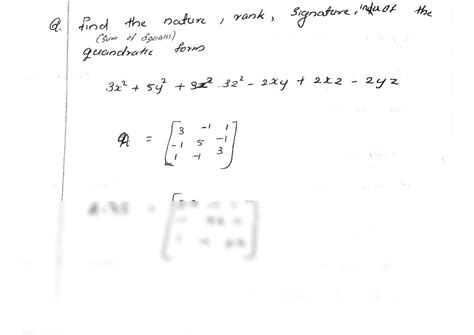 Q. find the nature, rank, signature, index of the
(sum of squares)
quandratic form
3x² + 5y² + 3z² - 2xy + 2xz - 2yz
A = [3 -1 1
-1 5 -1
1 -1 3]